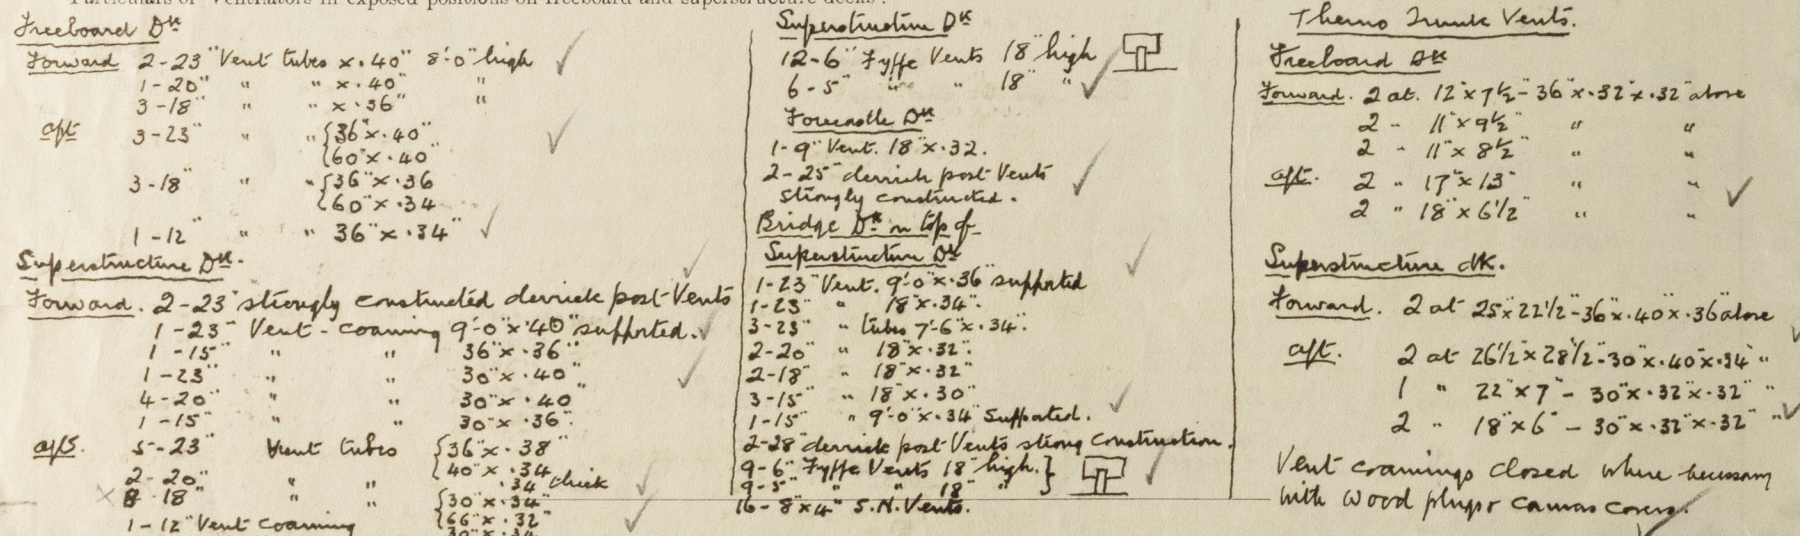 Particulars of Ventilators in exposed positions on freeboard and superstructure decks :
Freeboard Dk
Forward 2-23" Vent tubes x .40" 8'-0" high
1-20" " " x .40" "
3-18" " " x .36" "
aft 3-23" " " {36" x .40"
{60" x .40"
3-18" " " {36" x .36
{60" x .34
1-12 " " 36" x .34"
Superstructure Dk.
Forward. 2-23" strongly constructed derrick post Vents
1-23" Vent-coaming 9'-0" x .40" supported.
1-15" " " 36" x .36"
1-23" " " 30" x .40"
4-20" " " 30" x .40"
1-15" " " 30" x .36"
aft. 5-23" Vent tubes {36" x .38"
{40" x .34
2-20" " " .34 thick
8-18" " " {30" x .34"
{66" x .32"
1-12" Vent coaming 30" x .34
Superstructure Dk
12-6" Fyffe Vents 18" high
6-5" " " 18" "
Forecastle Dk
1-9" Vent. 18" x .32.
2-25" derrick post Vents
strongly constructed.
Bridge Dk on top of
Superstructure Dk
1-23" Vent. 9'-0" x .36" supported
1-23" " 18" x .34".
3-23" " tubes 7'-6" x .34".
2-20" " 18" x .32".
2-18" " 18" x .32"
3-15" " 18" x .30"
1-15" " 9'-0" x .34" Supported.
2-28" derrick post Vents strong construction.
9-6" Fyffe Vents 18" high. }
9-5" " " 18" " }
16-8" x 4" S.N. Vents.
Thermo Trunk Vents.
Freeboard Dk
Forward. 2 at. 12" x 7½" - 36" x .32" x .32" above
2 " 11" x 9½" " "
2 " 11" x 8½" " "
aft. 2 " 17" x 13" " "
2 " 18" x 6½" " "
Superstructure dk.
Forward. 2 at 25" x 22½" - 36" x .40" x .36" above
aft. 2 at 26½" x 28½" - 30" x .40" x .34" "
1 " 22" x 7" - 30" x .32" x .32" "
2 " 18" x 6" - 30" x .32" x .32" "
Vent coamings closed where necessary
with wood plugs & canvas covers.